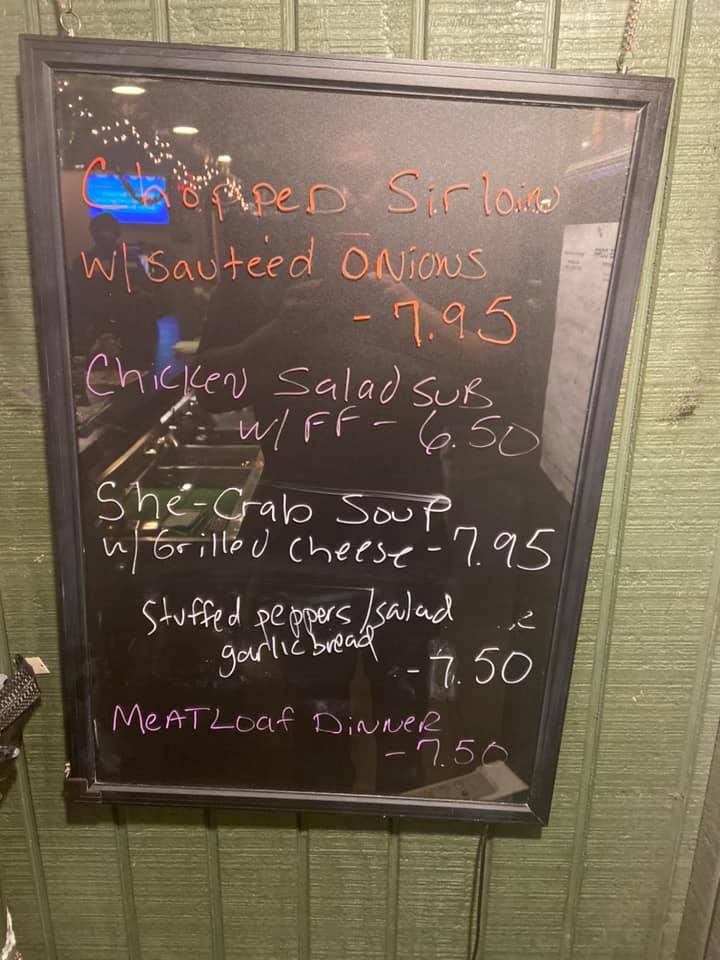 Chopped Sirloin
w/ sauteéd Onions
- 7.95
Chicken Salad SUB
w/ FF - 6.50
She-Crab Soup
w/ Grilled Cheese - 7.95
Stuffed peppers/salad
garlic bread
- 7.50
MeATLoaf DiNNeR
- 7.50